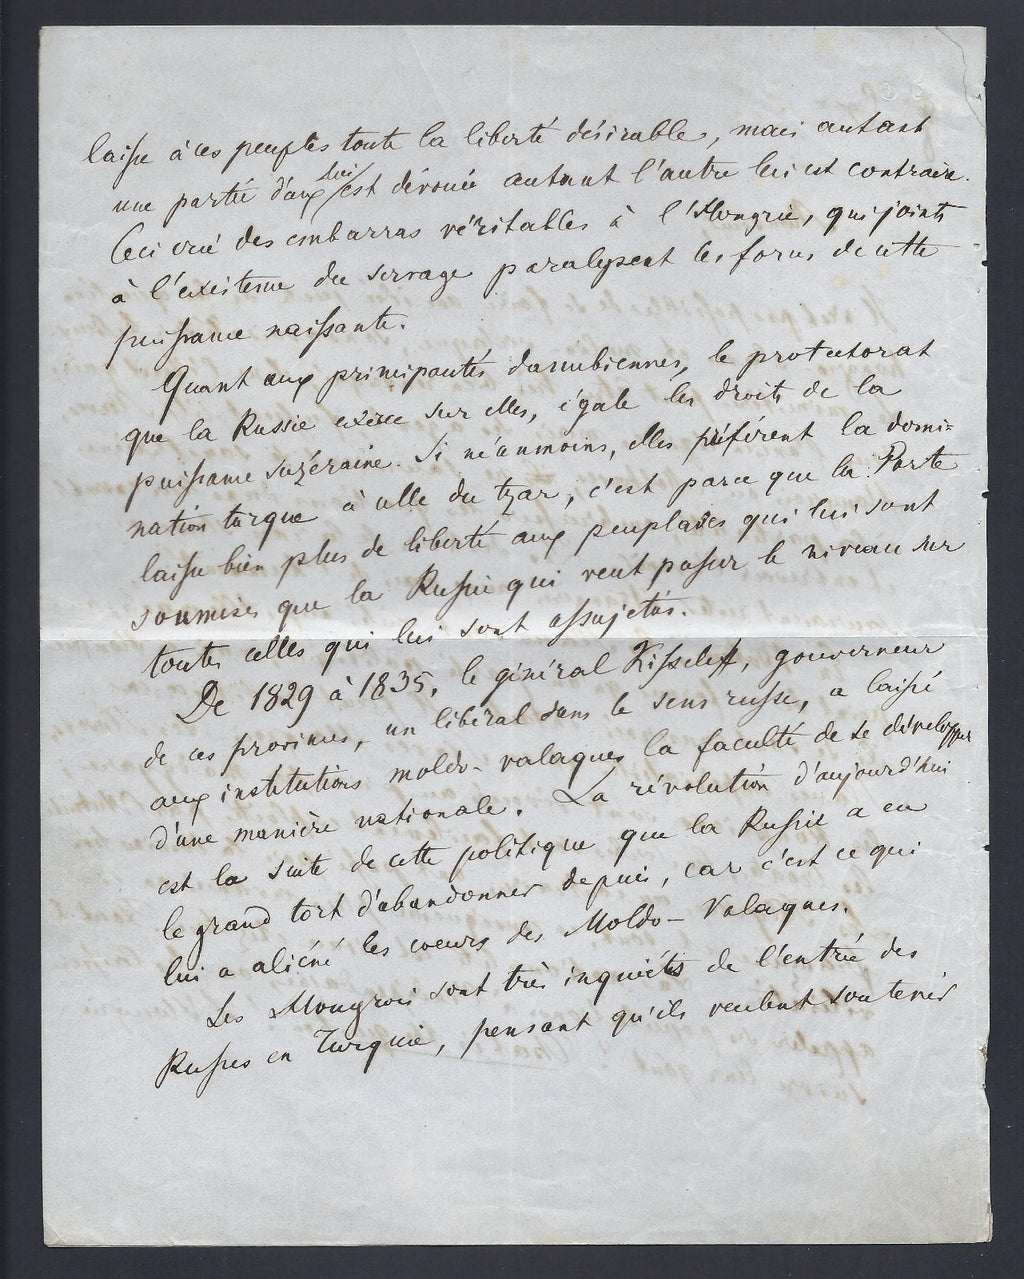 laisse à ces peuples toute la liberté désirable, mais autant
une partie d'eux lui est dévouée autant l'autre lui est contraire.
Ceci crée des embarras véritables à l'Hongrie, qui joints
à l'existence du servage paralysent les forces de cette
puissance naissante.
Quant aux principautés danubiennes, le protectorat
que la Russie exerce sur elles, égale les droits de la
puissance suzéraine. Si néanmoins, elles préfèrent la domi=
nation turque à celle du tzar, c'est parce que la Porte
laisse bien plus de liberté aux peuplades qui lui sont
soumises que la Russie qui veut passer le niveau sur
toutes celles qui lui sont assujetés.
De 1829 à 1835, le général Kisseleff, gouverneur
de ces provinces, un libéral dans le sens russe, a laissé
aux institutions moldo-valaques la faculté de se développer
d'une manière nationale. La révolution d'aujourd'hui
est la suite de cette politique que la Russie a eu
le grand tort d'abandonner depuis, car c'est ce qui
lui a aliéné les coeurs des Moldo-Valaques.
Les Hongrois sont très inquiets de l'entrée des
Russes en Turquie, pensant qu'ils veulent soutenir